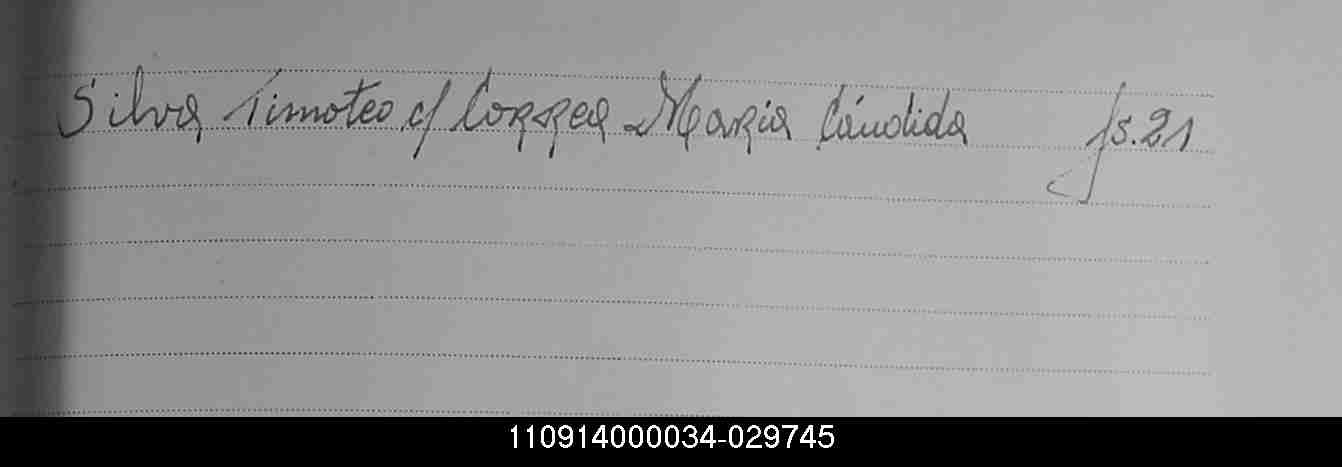 Silva Timoteo c/ Correa Maria Cándida fs. 21
110914000034-029745